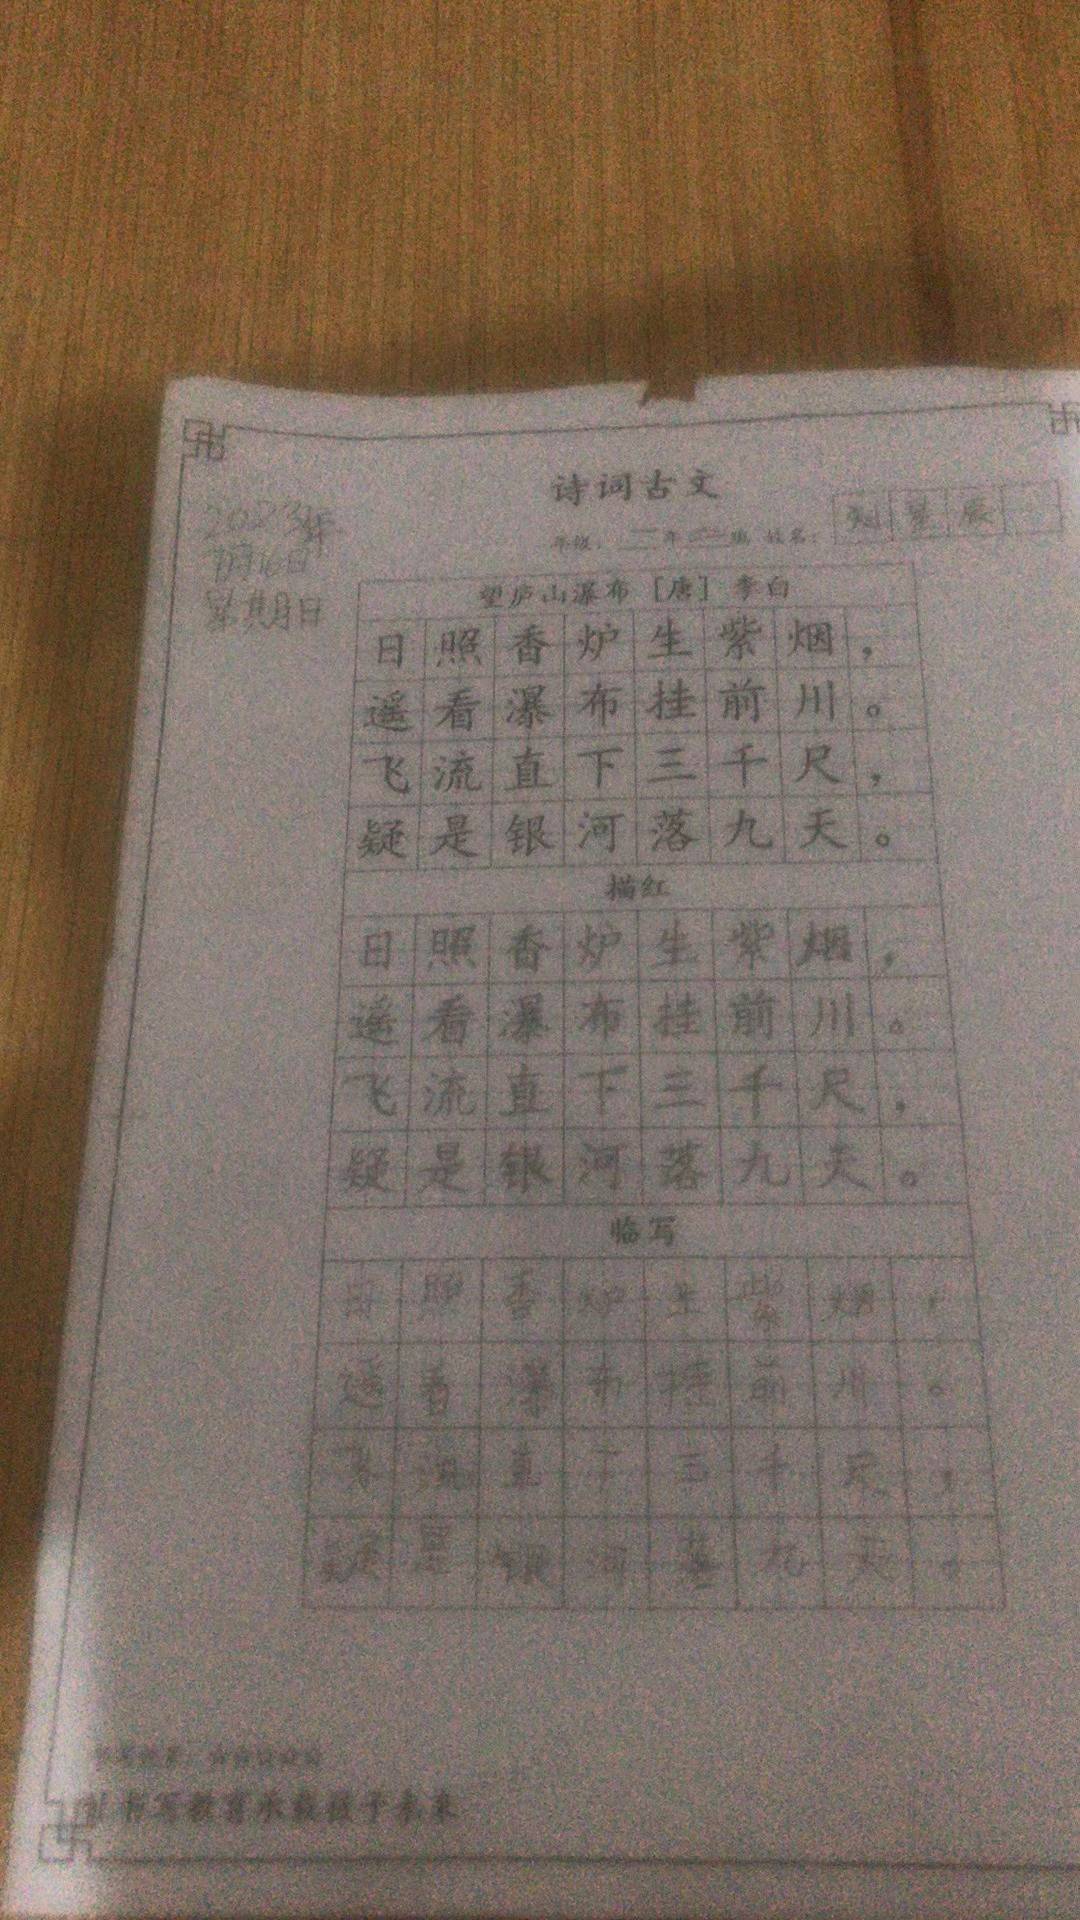 诗词古文
年级：二年二班 姓名： 星辰
2023年
7月16日
星期日
望庐山瀑布［唐］李白
日照香炉生紫烟，
遥看瀑布挂前川。
飞流直下三千尺，
疑是银河落九天。
描红
日照香炉生紫烟，
遥看瀑布挂前川。
飞流直下三千尺，
疑是银河落九天。
临写
日照香炉生紫烟，
遥看瀑布挂前川。
飞流直下三千尺，
疑是银河落九天。
让书写教育承载孩子未来